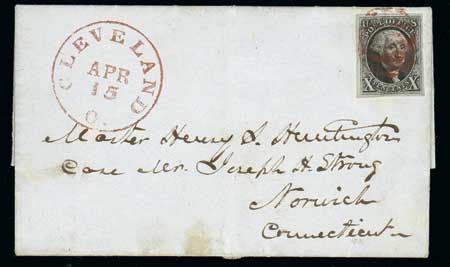 CLEVELAND
APR
15
O.
POST OFFICE
X X
Master Henry S. Huntington
Care Mr. Joseph H. Strong
Norwich
Connecticut